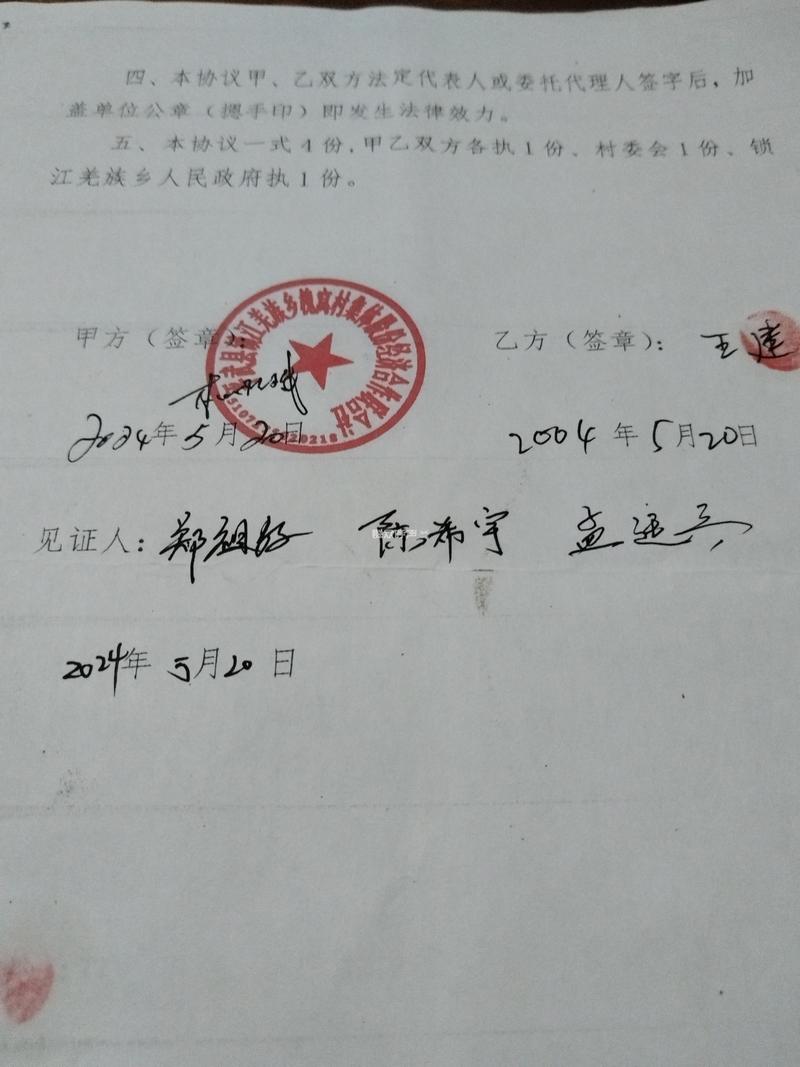 四、本协议甲、乙双方法定代表人或委托代理人签字后，加
盖单位公章（摁手印）即发生法律效力。
五、本协议一式4份，甲乙双方各执1份、村委会1份、锁
江羌族乡人民政府执1份。
甲方（签章）：
乙方（签章）： 王建
平武县锁江羌族乡槐窝村集体股份经济合作联合社
2024年5月20日
2004年5月20日
见证人：郑 陈希宇 孟运兵
2024年5月20日